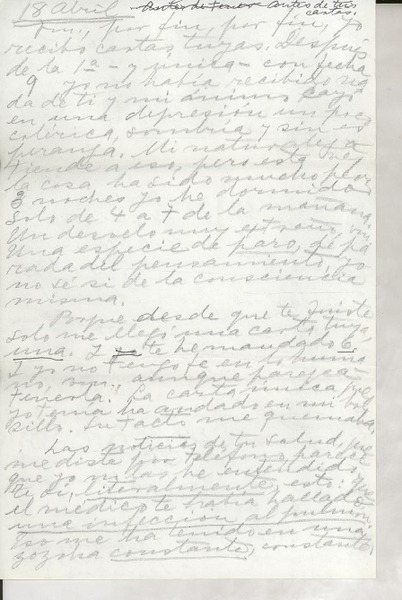 18 abril. Antes de tener antes de tus cartas.
Dm., por fin, por fin, yo
recibo cartas tuyas. Después
de la 1ª - y única - con fecha
9 yo no había recibido na
da de ti y mi ánimo cayó
en una depresión un poco
colérica, sombría y sin es
peranza. Mi naturaleza
tiende a eso, pero esta vez
la cosa ha sido mucho peor.
3 noches yo he dormido
solo de 4 a 7 de la mañana.
Un desvelo muy extraño,
una especie de paro, de pa
rada del pensamiento, yo
no sé si de la consciencia
misma.
Porque desde que te fuiste
solo me llegó una carta tuya,
una. Y yo te he mandado 6.
Y yo no tengo fe en lo huma
no, aunque parezca
tenerla. La carta única que
yo tenía ha andado en mi bol
sillo. Su tacto me quemaba.
Las noticias de tu salud, que
me diste por teléfono parece
que yo no las he entendido.
Yo oí, literalmente, esto: que
el médico te había hallado
una infección al pulmón.
Eso me ha tenido en una
zozobra constante, constante.